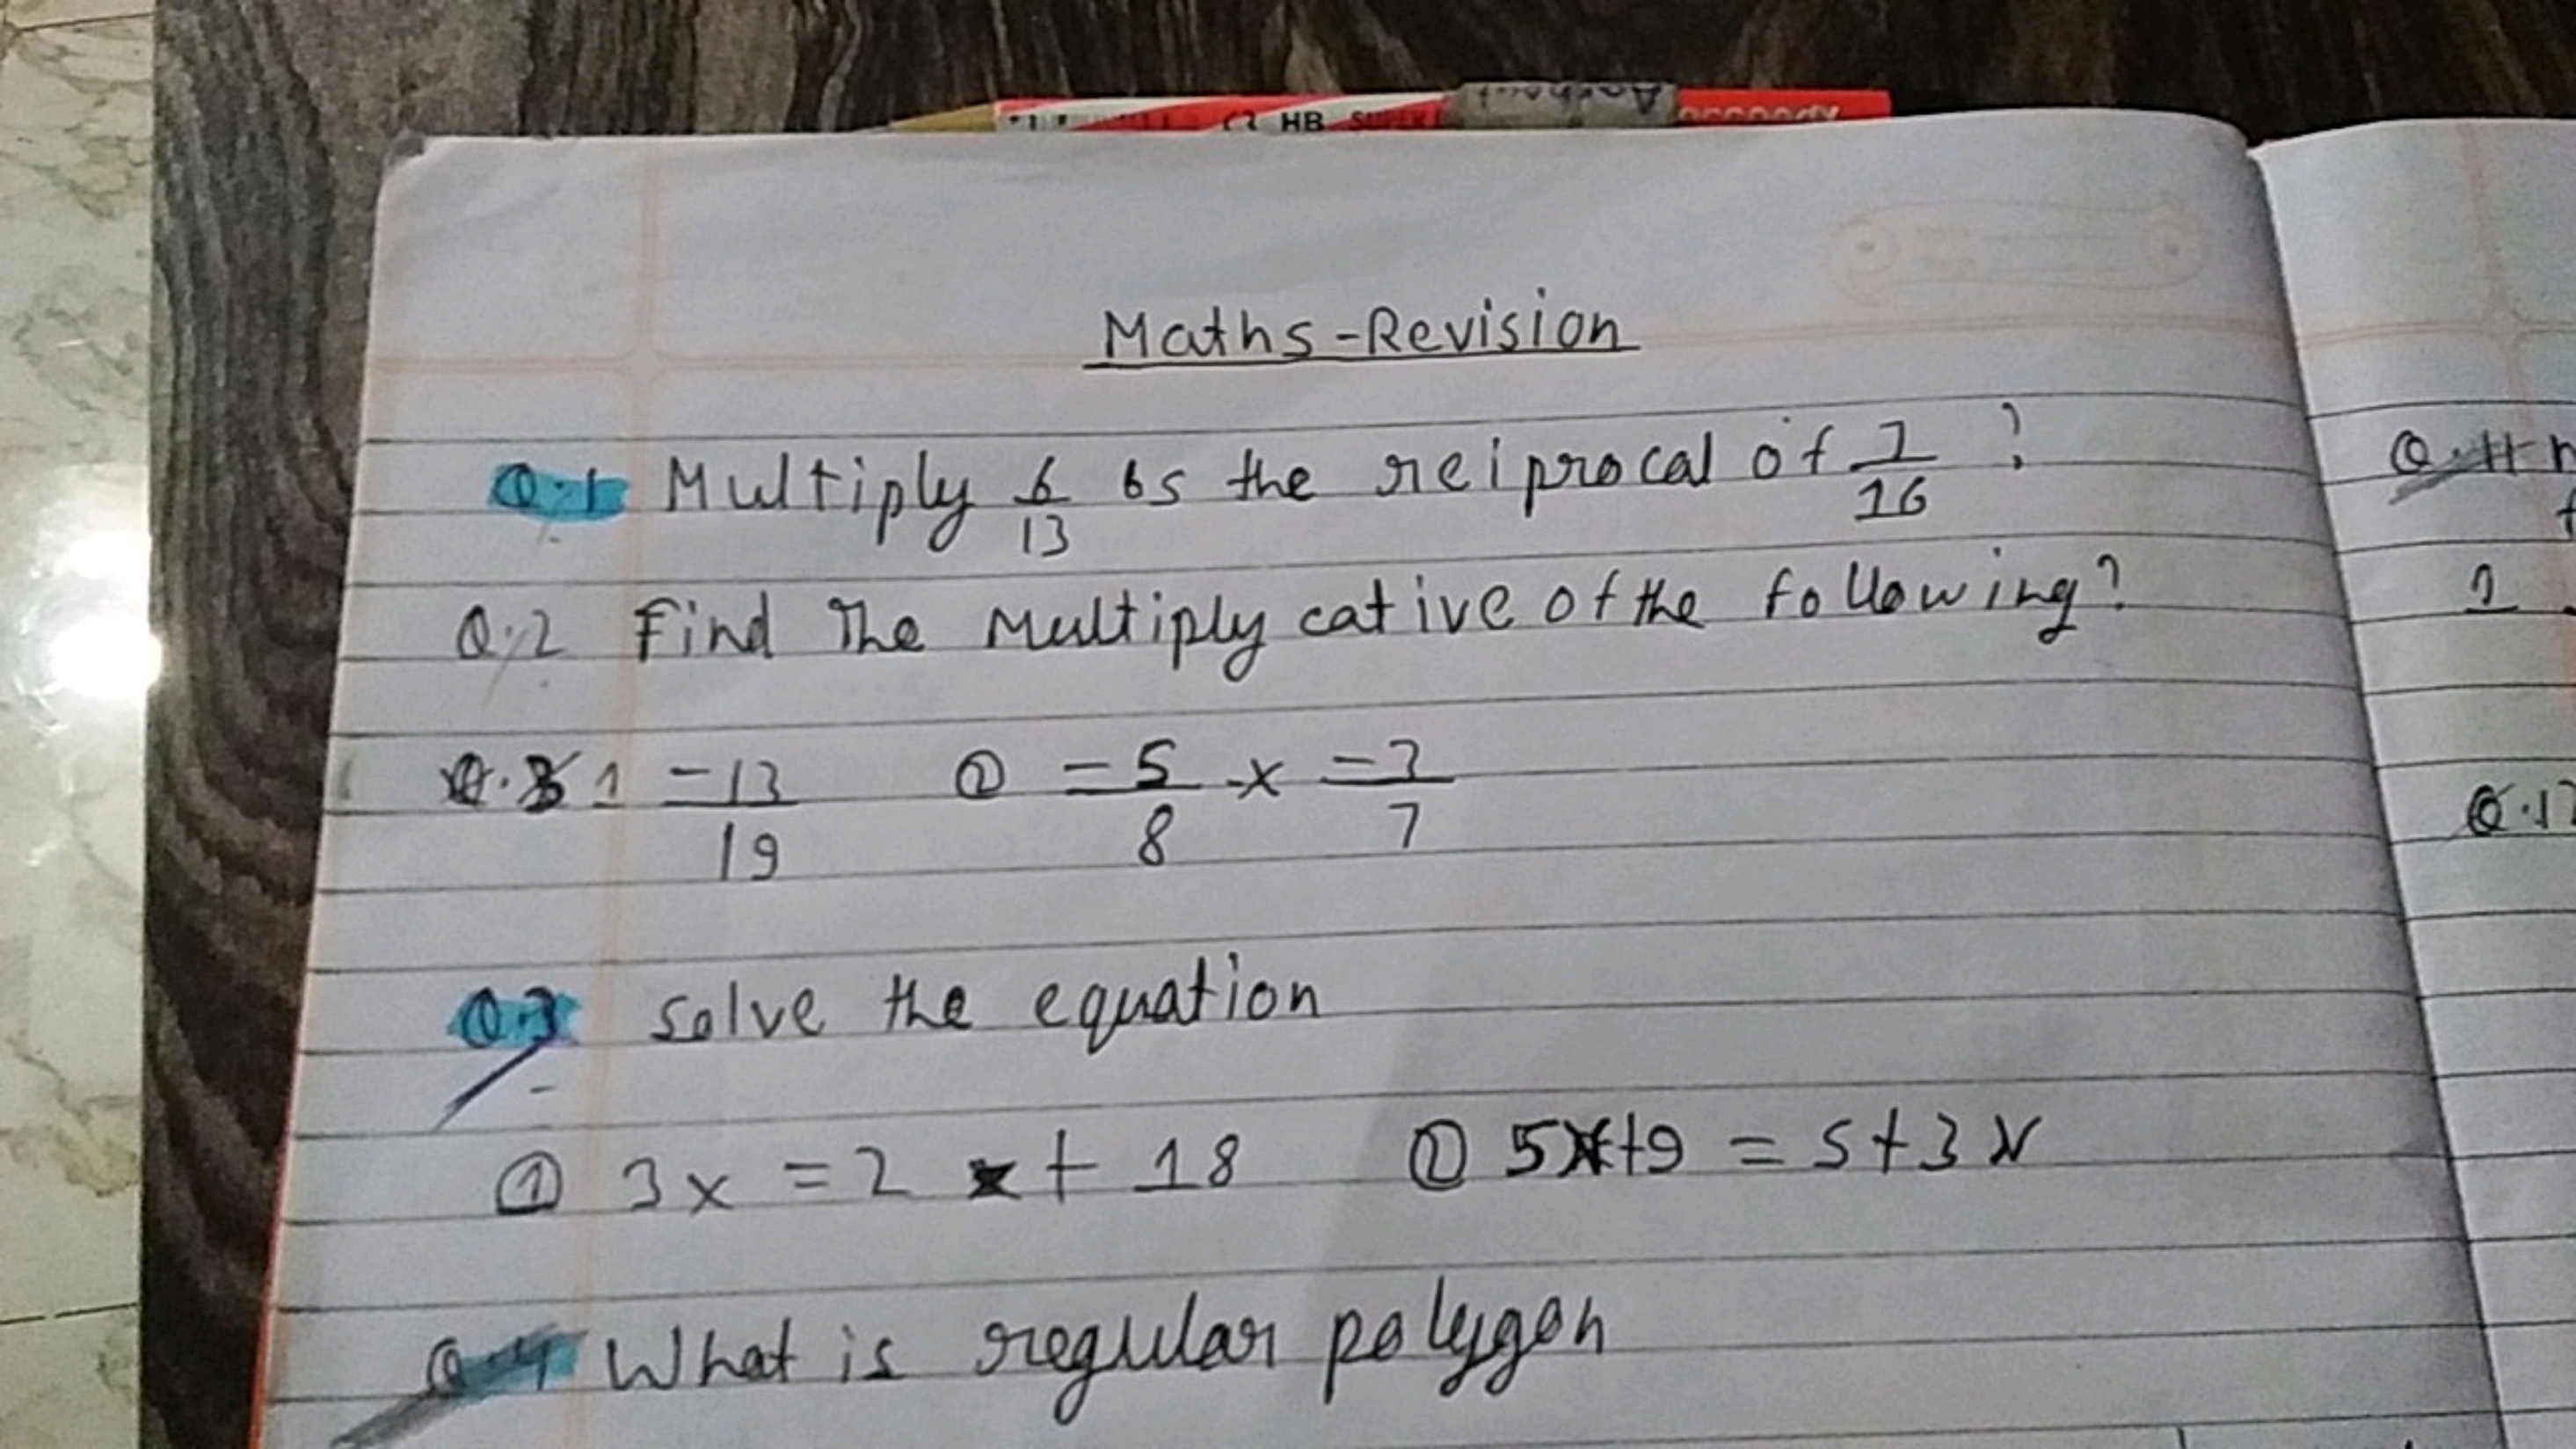 HB
Maths-Revision
Q.1 Multiply 6/13 6s the reciprocal of 7/16 ?
Q.2 Find The Multiply cative of the following?
1 -13/19 ② -5/8 x -3/7
Q.3 solve the equation
① 3x = 2x + 18 ② 5x+9 = 5+3x
Q.4 What is regular polygon
Q.11